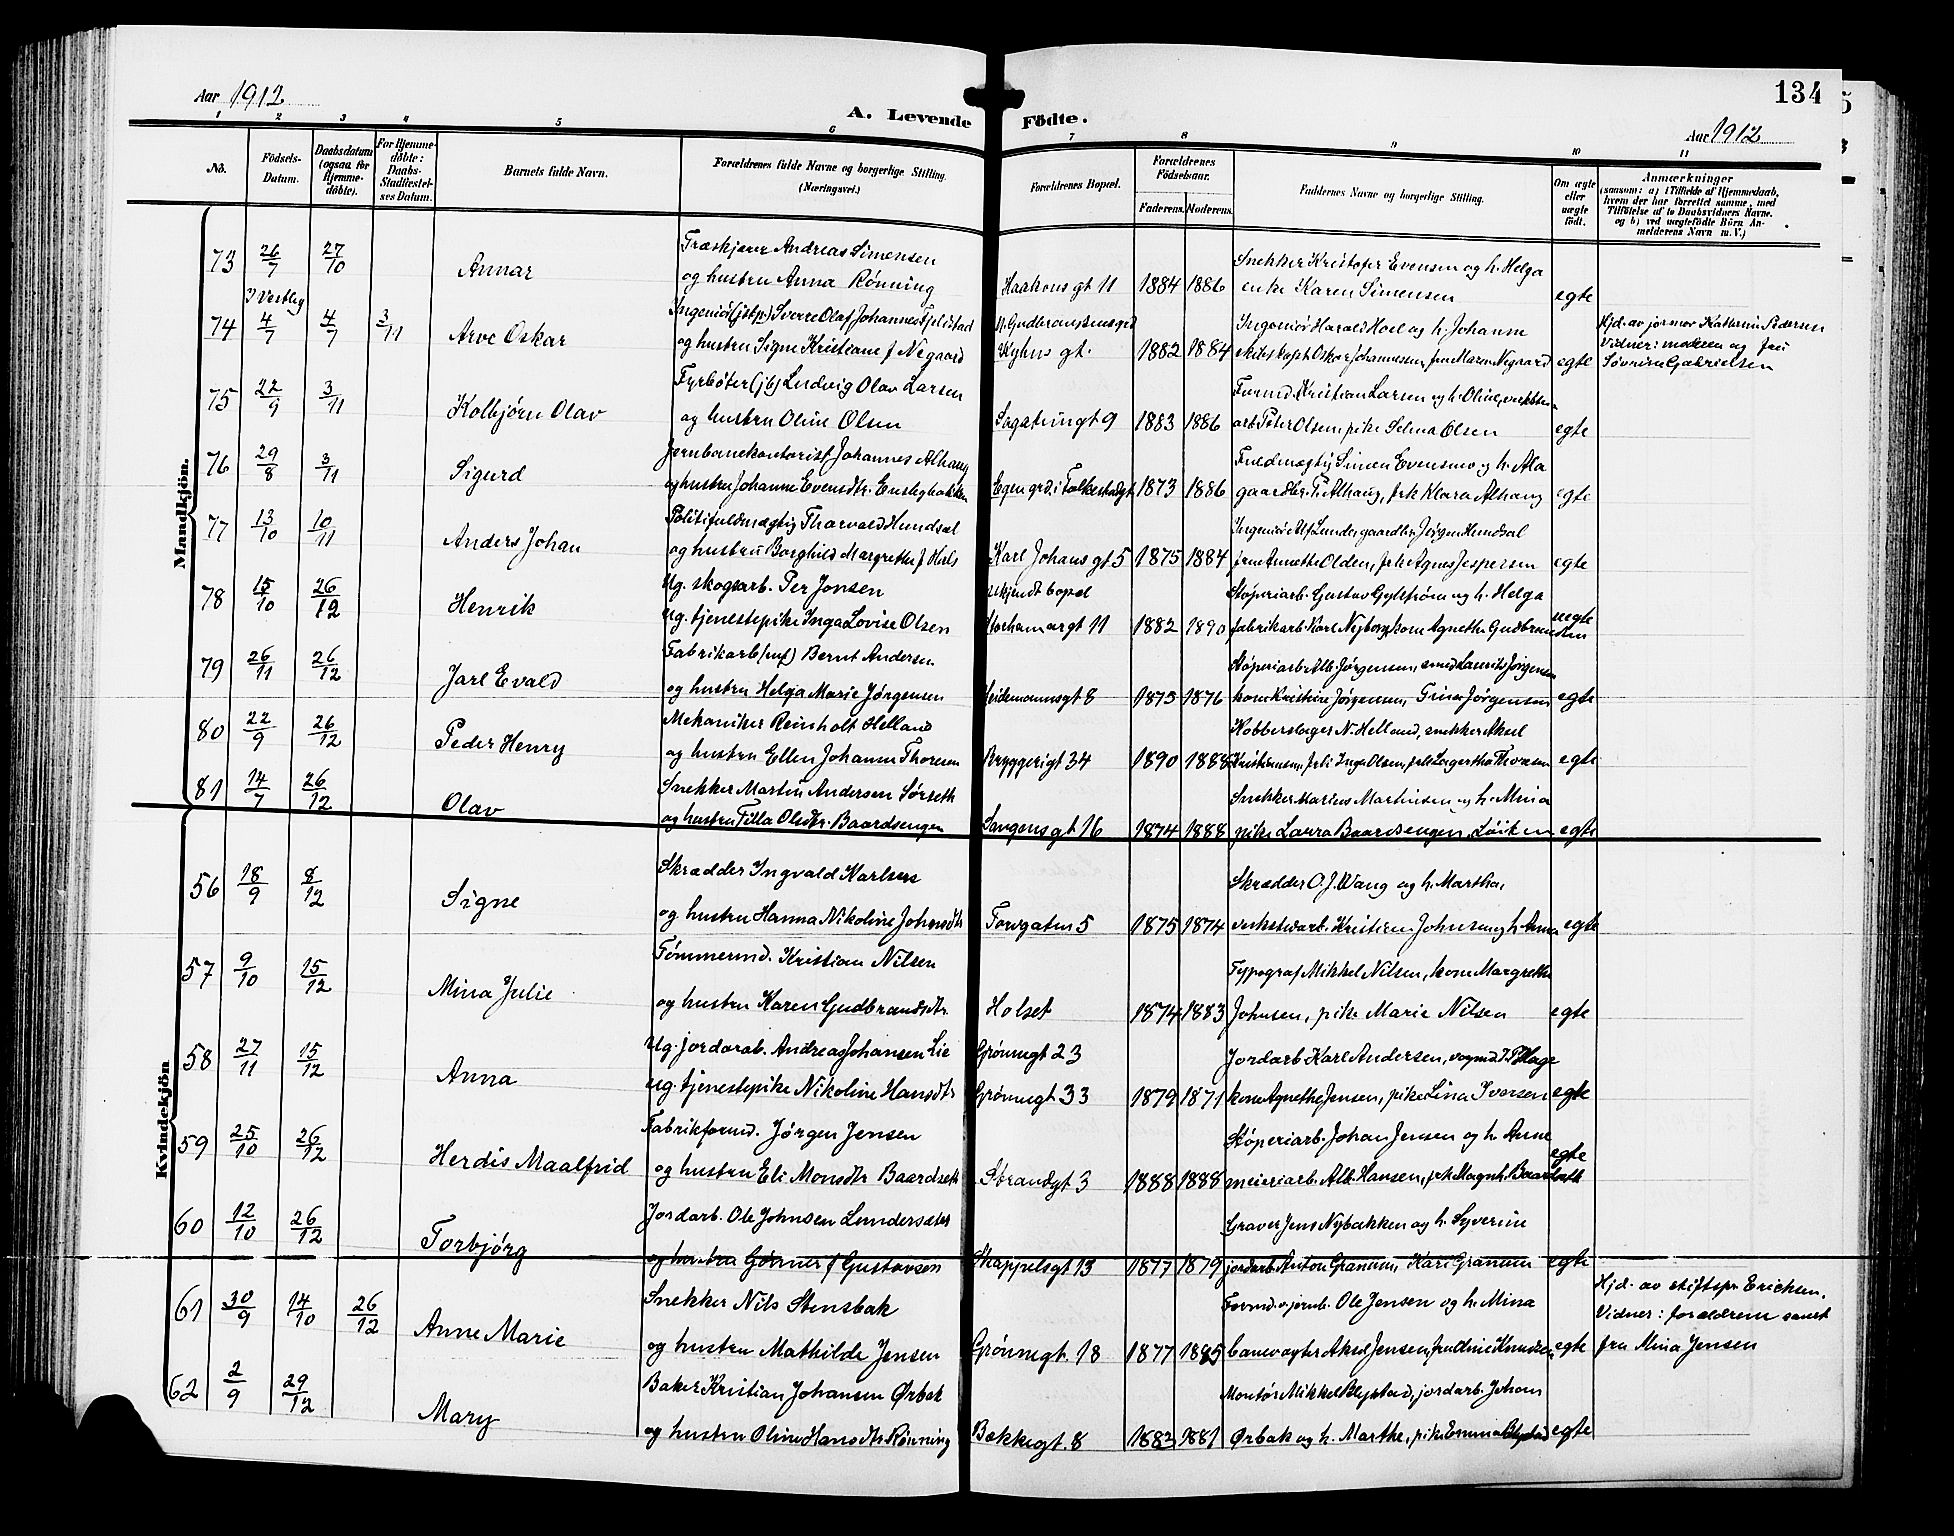 Aar 1912
134
A. Levende Födte.
Aar 1912
1 2 3 4 5 6 7 8 9 10 11
No.
Födsels-Datum.
Daabsdatum (ogsaa for Hjemme-döbte).
For Hjemme-döbte: Daabs-Stadfæstel-ses Datum.
Barnets fulde Navn.
Forældrenes fulde Navne og borgerlige Stilling. (Næringsvei.)
Forældrenes Bopæl.
Forældrenes Födselsaar.
Faderens. Moderens.
Faddernes Navne og borgerlige Stilling.
Om ægte eller uægte födt.
Anmærkninger
(saasom: a) i Tilfælde af Hjemmedaab, hvem der har forrettet samme, med Tilföielse af to Daabsvidners Navne, og b) ved uægtefödte Börn Anmelderens Navn m. V.)
Mandkjön.
73 26/7 27/10 Annar
Træskjærer Andreas Simensen
og hustru Anna Rönning
Haakons gt 11 1884 1886
Snekker Kristofer Evensen og h. Helga
enke Karen Simensen egte
74 I Vestby 4/7 4/7 3/11 Arve Oskar
Ingeniör (jstp) Sverre Olaf Johannes Fjeldstad
og hustru Signe Kristiane f Negaard
Nyhus gt. 1882 1884
Ingeniör Harald Hoel og h. Johanne
Oskar Johannessen, fru Maren Negaard egte
Hjd. av jormor Kathrine Pedersen
Vidner: moderen og fru
Søvrine Gabrielsen
75 22/9 3/11 Kolbjörn Olav
Fyrböter (jb) Ludvig Olav Larsen
og hustru Oline Olsen
Sagatungt 9 1883 1886
Formd. Kristian Larsen og h. Oline, verksten-
arb Peter Olsen, pike Selma Olsen egte
76 29/8 3/11 Sigurd
Jernbanekontorist Johannes Alhaug
og hustru Johanne Evensdtr. Enstighakken
Egen grd. i Folkestadgt 1873 1886
Fuldmægtig Simen Evensmo og h. Ala
gaardbr. P. Alhaug, frk Klara Alhaug egte
77 13/10 10/11 Anders Johan
Politifuldmægtig Thorvald Hundsal
og hustru Borghild Margrethe f Hals
Karl Johans gt 5 1875 1884
Ingeniör Alf Lunde, gaardbr Jörgen Hundsal
frue Annette Olden, frk Agnes Jespersen egte
78 15/10 26/12 Henrik
Ug. skogsarb. Per Jonsen
Ug. tjenestepike Inga Lovise Olsen
ukjendt bopel
Storhamargt 11 1882 1890
Stöperiarb. Gustav Gylström og h. Helga
fabrikarb. Karl Nyborg, kone Agnethe Gudbrandsen uegte
79 26/11 26/12 Jarl Evald
Fabrikarb (mf) Bernt Andersen
og hustru Helga Marie Jörgensen
Heidemannsgt 8 1875 1876
Stöperiarb. Alb. Jörgensen, smed Laurits Jörgensen
kone Kristine Jörgensen, Trina Jörgensen egte
80 22/9 26/12 Peder Henry
Mekaniker Reinholt Helland
og hustru Ellen Johanne Thoresen
Bryggerigt 34 1890 1888
Kobberslager N. Helland, snekker Aksel
Kristiansen, frk Inga Olsen, frk Lagertha Thoresen egte
81 14/7 26/12 Olav
Snekker Martin Andersen Sörseth
og hustru Tilla Olsdtr. Baardsengen
Langensgt 16 1874 1888
Snekker Marius Martinsen og h. Mina
pike Laura Baardsengen, Löiten egte
Kvindekjön
56 18/9 8/12 Signe
Skrædder Ingvald Karlsen
og hustru Hanna Nikoline Johnsdtr
Torvgaten 5 1875 1874
Skrædder O. J. Wang og h. Martha,
verkstedarb. Kristian Johnsen og h. Anna egte
57 9/10 15/12 Mina Julie
Tömmermd. Kristian Nilsen
og hustru Karen Gudbrandsdtr.
Holset 1874 1883
Typograf Mikkel Nilsen, kone Margrethe
Johnsen, pike Marie Nilsen egte
58 27/11 15/12 Anna
Ug. jordarb. Andreas Johansen Lie
Ug. tjenestepike Nikoline Hansdtr
Grönnegt 23
Grönnegt 33 1879 1871
Jordarb Karl Andersen, vognmd J. P. Hage
kone Agnethe Jensen, pike Lina Iversen egte
59 25/10 26/12 Herdis Maalfrid
Fabrikformd. Jörgen Jensen
og hustru Eli Monsdtr Baardseth
Strandgt 3 1888 1888
Stöperiarb. Johan Jensen og h. Anne
meieriarb. Alb. Hansen, frk Magnh. Baardseth egte
60 12/10 26/12 Torbjörg
Jordarb. Ole Johnsen Lundersæter
og hustru Gunner f Gustavsen
Skappelsgt 13 1877 1879
Graver Jens Nybakken og h. Syverine
jordarb. Anton Granum, Kari Granum egte
61 30/9 14/10 26/12 Anne Marie
Snekker Nils Stensbak
og hustru Mathilde Jensen
Grönnegt. 18 1877 1885
Formd. v. jernb. Ole Jensen og h. Mina
banevogter Aksel Jensen, fru Oline Knudsen egte
Hjd. av stiftspr. Ericksen.
Vidner: forældrene samt
fru Mina Jensen
62 2/9 29/12 Mary
Baker Kristian Johansen Ørbak
og hustru Oline Hansdtr Rönning
Bakkegt. 8 1882 1881
Montör Mikkel Blystad, jordarb. Johan
Ørbak og h. Marthe, pike Emma Blystad egte